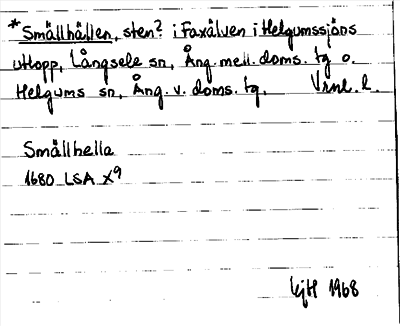 *Smällhällen, sten? i Faxälven i Helgumssjöns
utlopp, Långsele sn, Ång. mell. doms. tg o.
Helgums sn, Ång. v. doms. tg. Vrnl. l.
Smällhella
1680 LSA X9
1968